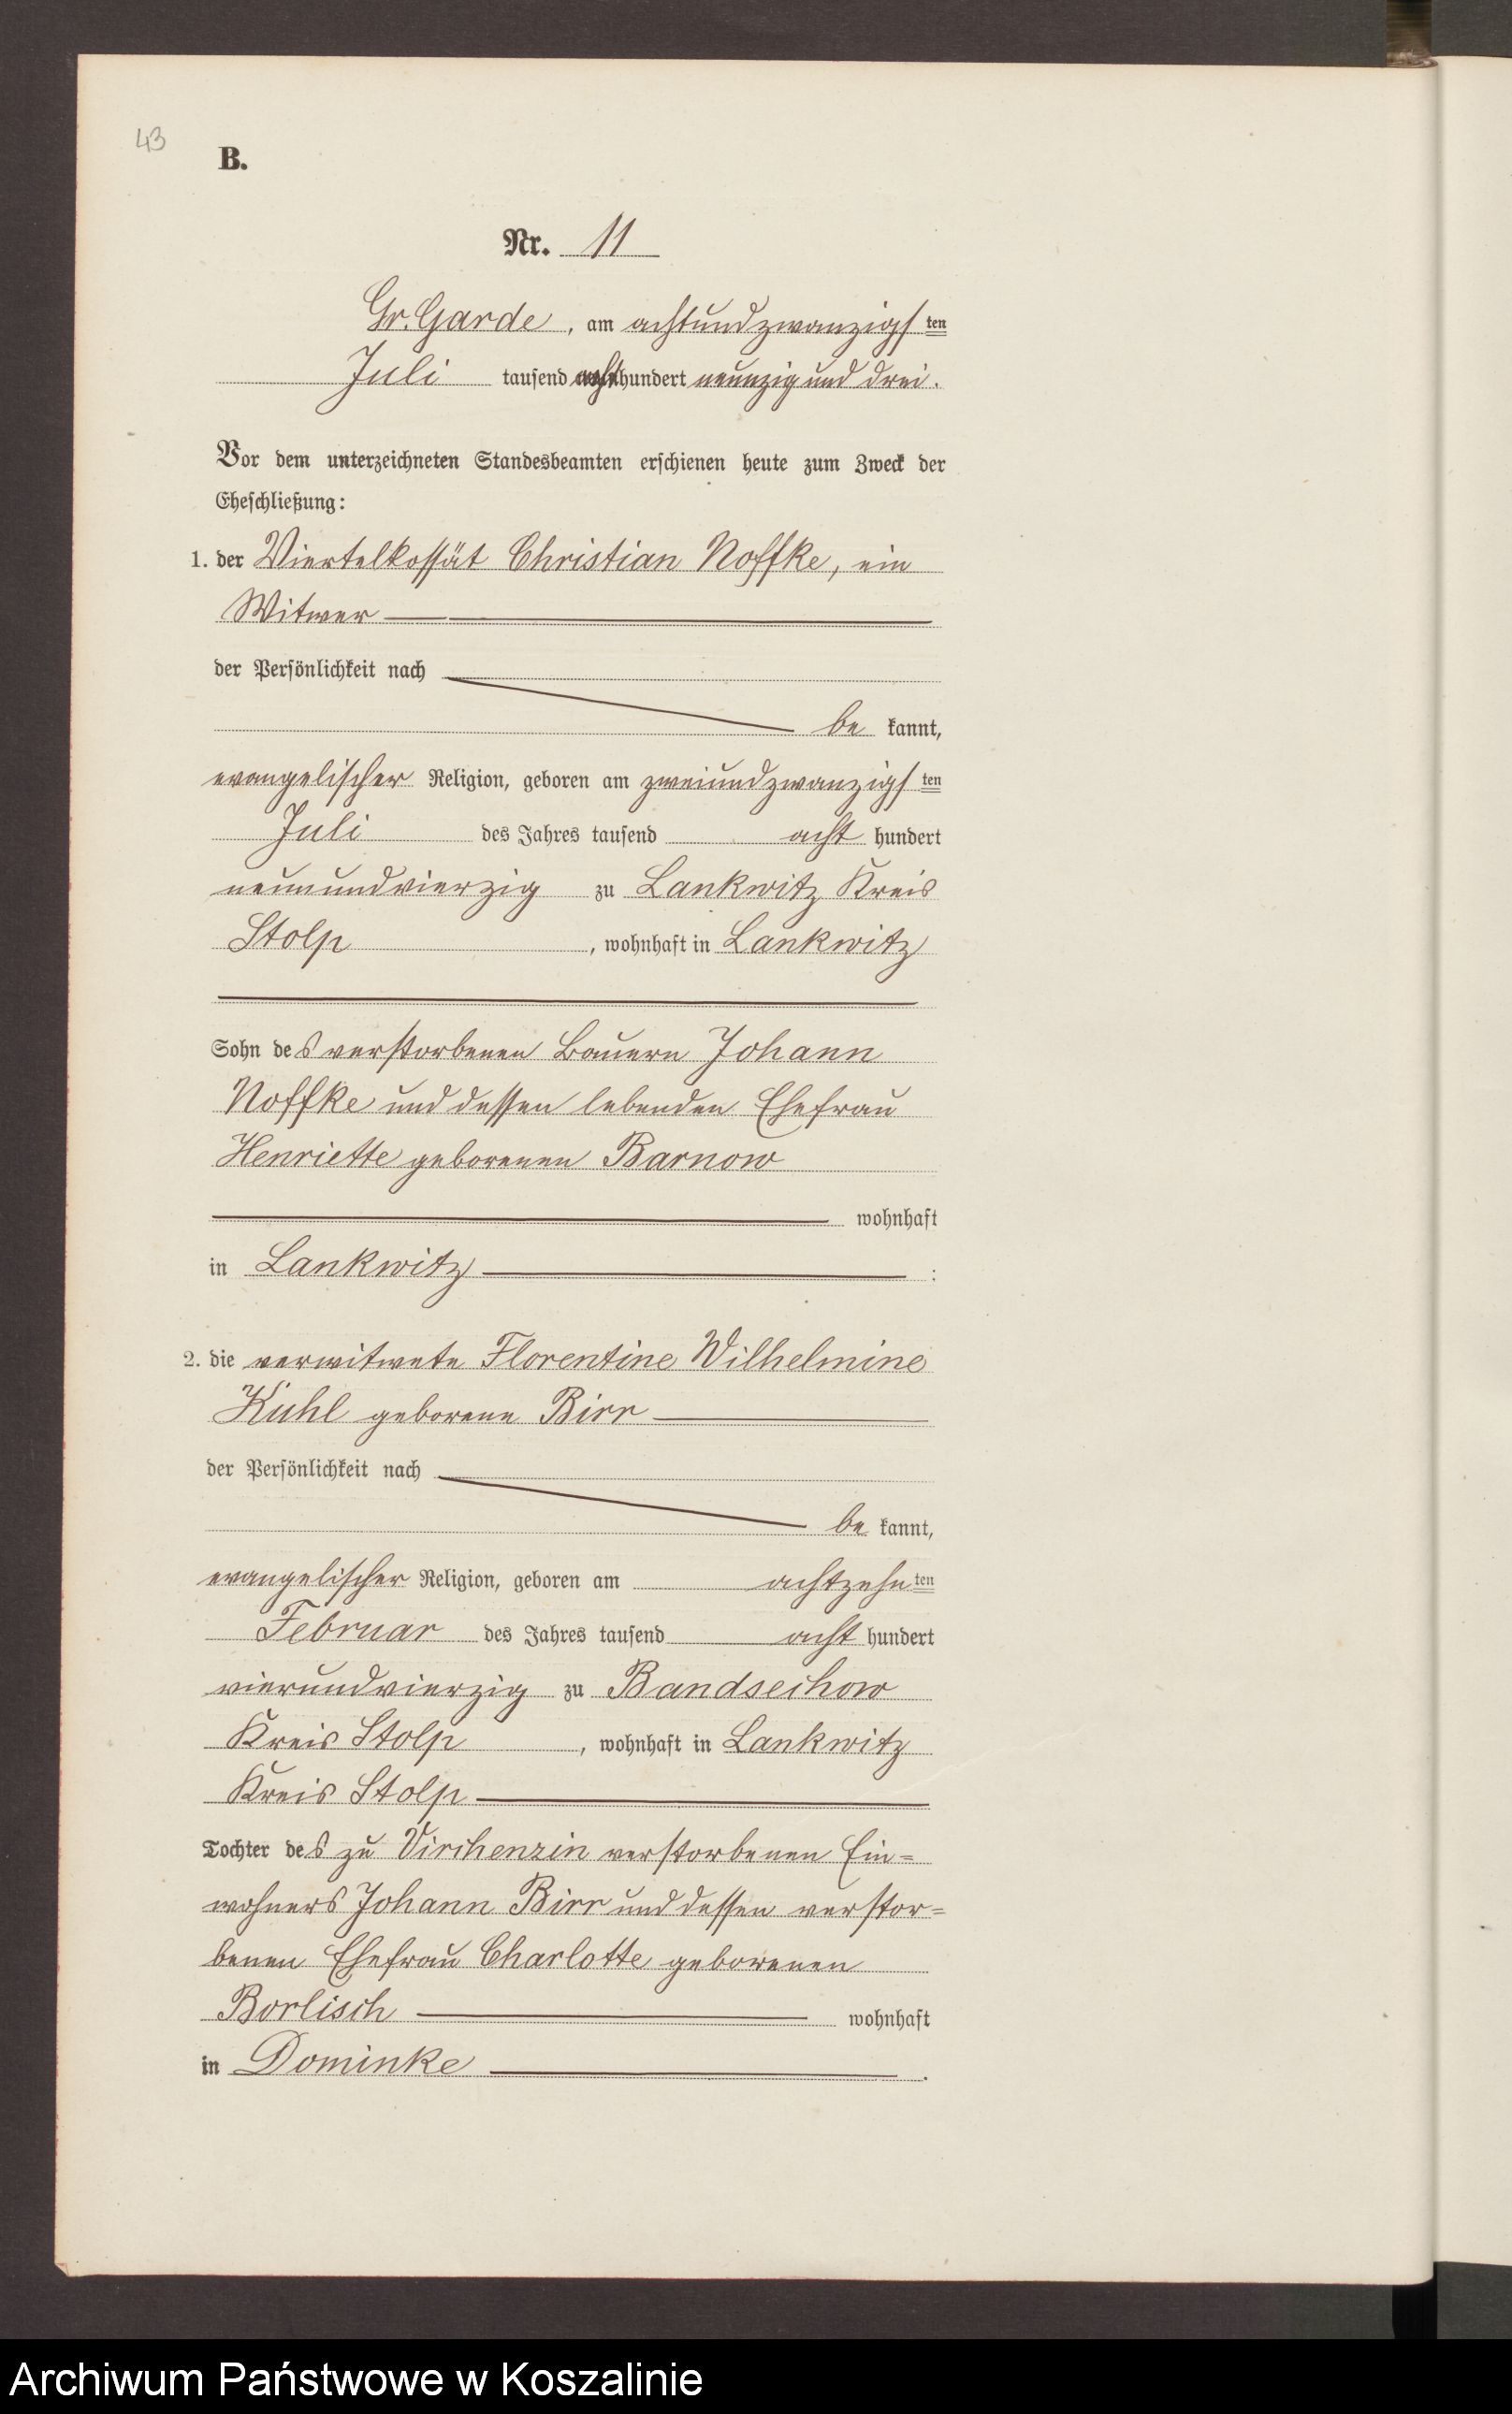 43
B.
Nr. 11
Gr. Garde, am achtundzwanzigsten
Juli tausend achthundert neunzig und drei.
Vor dem unterzeichneten Standesbeamten erschienen heute zum Zweck der
Eheschließung:
1. der Viertelkossät Christian Noffke, ein
Witwer
der Persönlichkeit nach
be kannt,
evangelischer Religion, geboren am zweiundzwanzigsten
Juli des Jahres tausend acht hundert
neunundvierzig zu Lankwitz Kreis
Stolp, wohnhaft in Lankwitz
Sohn des verstorbenen Bauern Johann
Noffke und dessen lebenden Ehefrau
Henriette geborenen Barnow
wohnhaft
in Lankwitz :
2. die verwitwete Florentine Wilhelmine
Kuhl geborene Birr
der Persönlichkeit nach
be kannt,
evangelischer Religion, geboren am achtzehnten
Februar des Jahres tausend acht hundert
vierundvierzig zu Bandsechow
Kreis Stolp, wohnhaft in Lankwitz
Kreis Stolp
Tochter des zu Virchenzin verstorbenen Ein=
wohners Johann Birr und dessen verstor=
benen Ehefrau Charlotte geborenen
Borlisch wohnhaft
in Dominke .
Archiwum Państwowe w Koszalinie